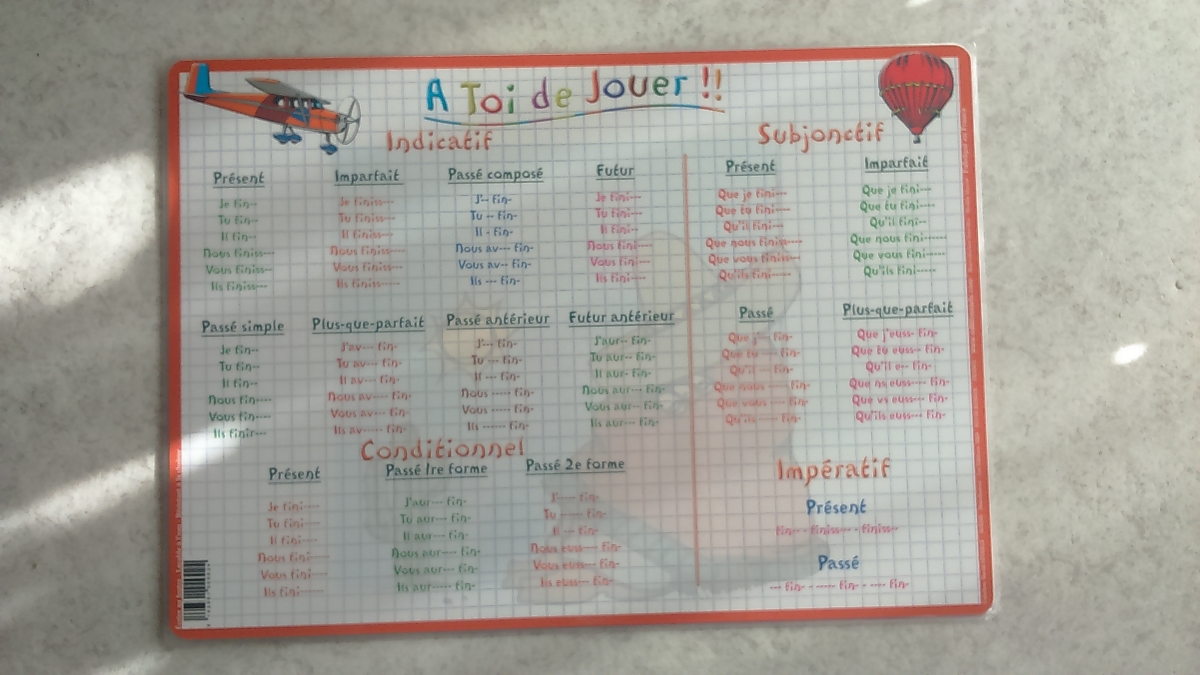 A Toi de Jouer !!
Indicatif
Présent
Je fin--
Tu fin--
Il fin--
Nous finiss---
Vous finiss---
Ils finiss---
Imparfait
Je finiss---
Tu finiss---
Il finiss---
Nous finiss----
Vous finiss----
Ils finiss-----
Passé composé
J'-- fin-
Tu -- fin-
Il - fin-
Nous av--- fin-
Vous av-- fin-
Ils --- fin-
Futur
Je fini---
Tu fini----
Il fini---
Nous fini----
Vous fini----
Ils fini----
Passé simple
Je fin--
Tu fin--
Il fin--
Nous fin----
Vous fin----
Ils finir---
Plus-que-parfait
J'av--- fin-
Tu av--- fin-
Il av--- fin-
Nous av---- fin-
Vous av--- fin-
Ils av----- fin-
Passé antérieur
J'--- fin-
Tu --- fin-
Il --- fin-
Nous ----- fin-
Vous ----- fin-
Ils ------ fin-
Futur antérieur
J'aur-- fin-
Tu aur-- fin-
Il aur- fin-
Nous aur--- fin-
Vous aur-- fin-
Ils aur--- fin-
Conditionnel
Présent
Je fini----
Tu fini----
Il fini----
Nous fini-----
Vous fini----
Ils fini------
Passé 1re forme
J'aur--- fin-
Tu aur--- fin-
Il aur--- fin-
Nous aur---- fin-
Vous aur--- fin-
Ils aur----- fin-
Passé 2e forme
J'---- fin-
Tu ----- fin-
Il --- fin-
Nous euss---- fin-
Vous euss--- fin-
Ils euss--- fin-
Subjonctif
Présent
Que je fini---
Que tu fini----
Qu'il fini---
Que nous finiss----
Que vous finiss---
Qu'ils fini-----
Imparfait
Que je fini---
Que tu fini----
Qu'il fini--
Que nous fini------
Que vous fini-----
Qu'ils fini-----
Passé
Que j'--- fin-
Que tu ---- fin-
Qu'il --- fin-
Que nous ---- fin-
Que vous ---- fin-
Qu'ils ---- fin-
Plus-que-parfait
Que j'euss- fin-
Que tu euss-- fin-
Qu'il e-- fin-
Que ns euss---- fin-
Que vs euss--- fin-
Qu'ils euss--- fin-
Impératif
Présent
fin-- - finiss--- - finiss--
Passé
--- fin- - ----- fin- - ---- fin-